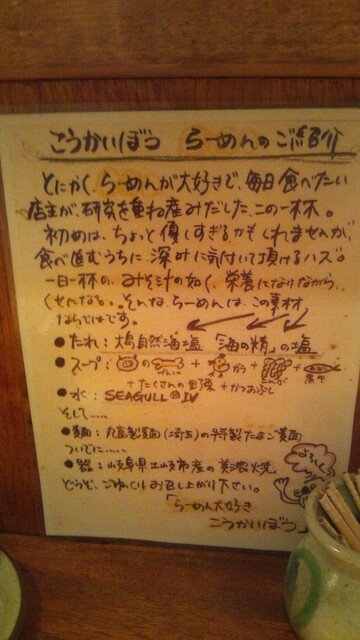 こうかいぼう らーめんのご紹介
とにかく、らーめんが大好きで、毎日食べたい
店主が、研究を重ね産みだした、この一杯。
初めは、ちょっと優しすぎるかもしれませんが、
食べ進むうちに、深みに気付いて頂けるハズ。
一日一杯の、みそ汁の如く、栄養になりながら、
くせになる。。そんな、らーめんは、この素材
ならではです。
●たれ：大島自然海塩 「海の精」の塩
●スープ： の + から + +
+たくさんの + かつおぶし
●水：SEAGULL Ⅳ
そして……
●麺：丸富製麺(埼玉)の特製たまご麺
ついでに……
●器：岐阜県土岐市産の美濃焼
どうぞ、ごゆっくりお召し上がり下さい。
「らーめん大好き
こうかいぼう」